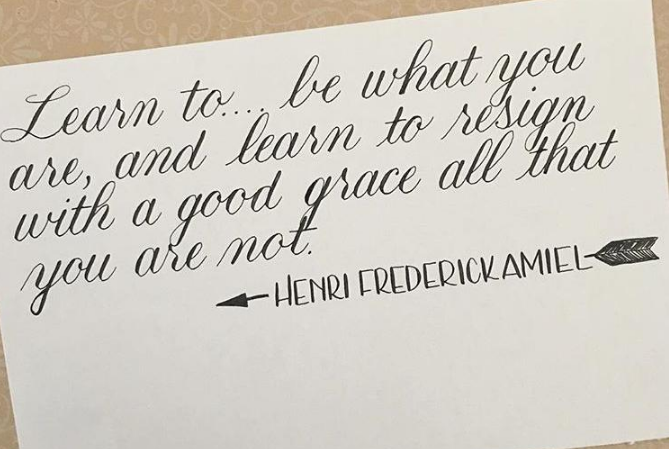 Learn to.... be what you
are, and learn to resign
with a good grace all that
you are not.
HENRI FREDERICK AMIEL